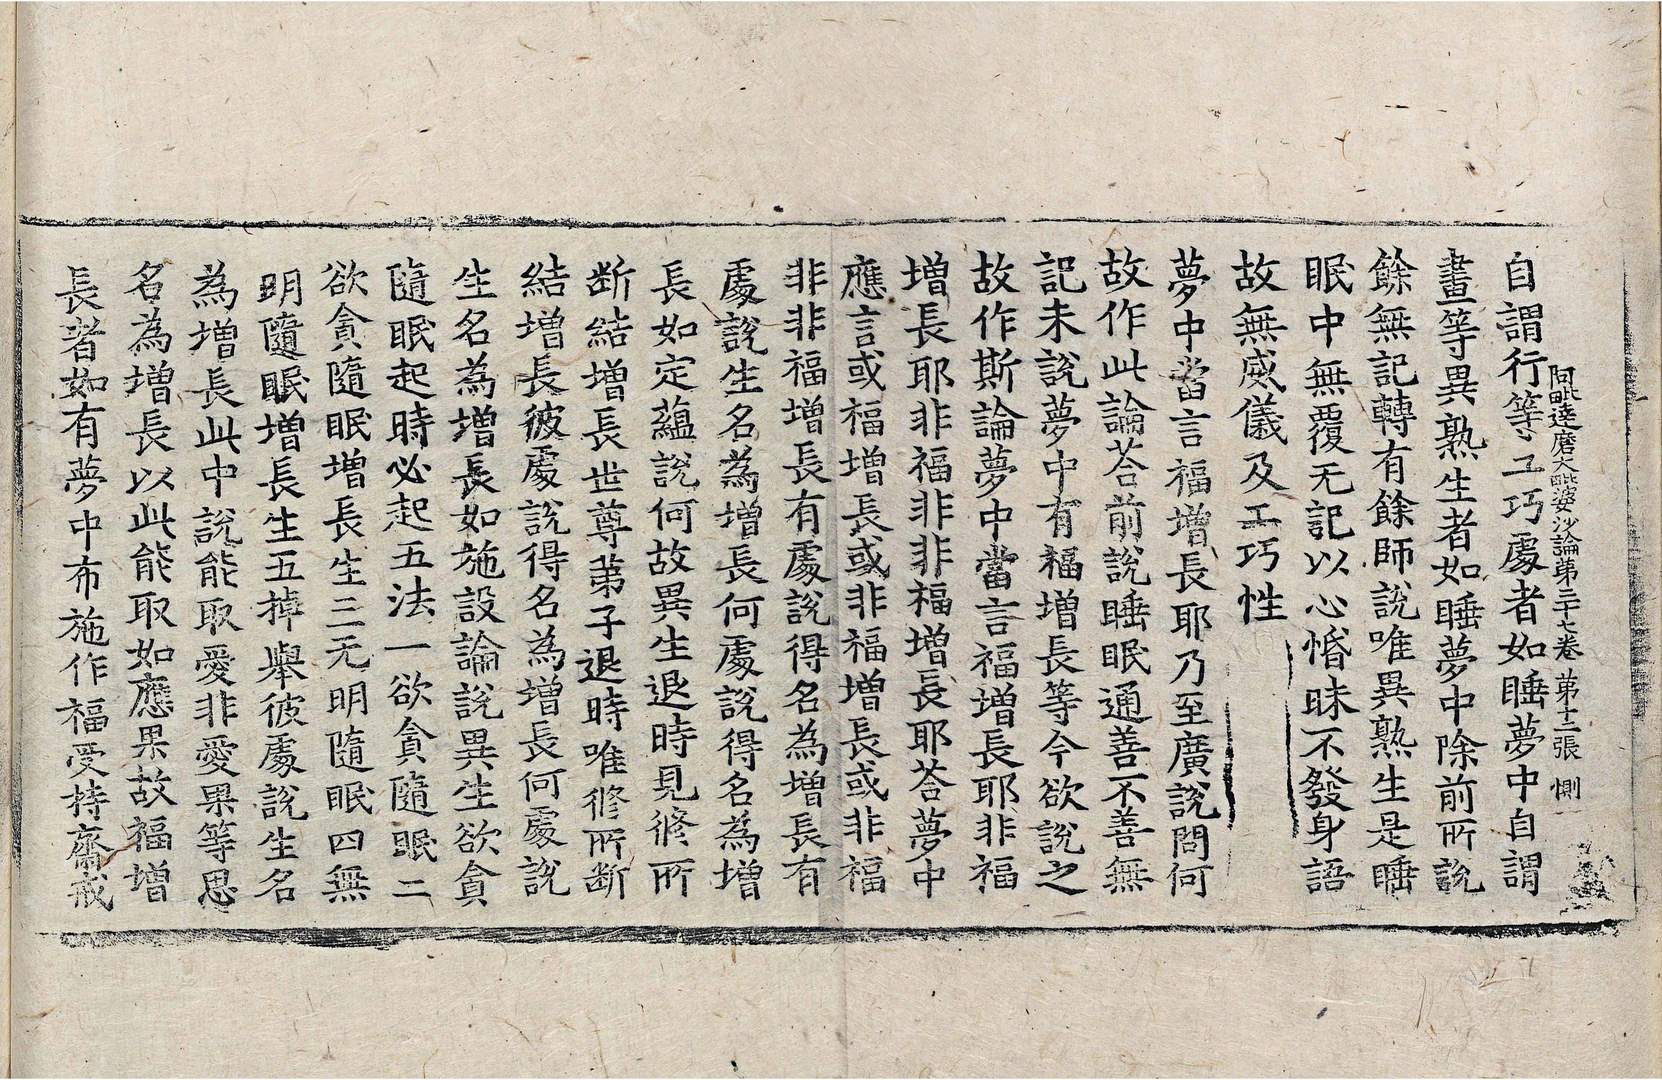 阿毗達磨大毗婆沙論第三十七卷 第十二張 惻
自謂行等工巧處者如睡夢中自謂
畫等異熟生者如睡夢中除前所說
餘無記轉有餘師說唯異熟生是睡
眠中無覆无記以心惛昧不發身語
故無威儀及工巧性
夢中當言福增長耶乃至廣說問何
故作此論荅前說睡眠通善不善無
記未說夢中有福增長等今欲說之
故作斯論夢中當言福增長耶非福
增長耶非福非非福增長耶荅夢中
應言或福增長或非福增長或非福
非非福增長有處說得名為增長有
處說生名為增長何處說得名為增
長如定蘊說何故異生退時見修所
断結增長世尊弟子退時唯修所断
結增長彼處說得名為增長何處說
生名為增長如施設論說異生欲貪
隨眠起時必起五法一欲貪隨眠二
欲貪隨眠增長生三无明隨眠四無
明隨眠增長生五掉舉彼處說生名
為增長此中說能取愛非愛果等思
名為增長以此能取如應果故福增
長者如有夢中布施作福受持齋戒